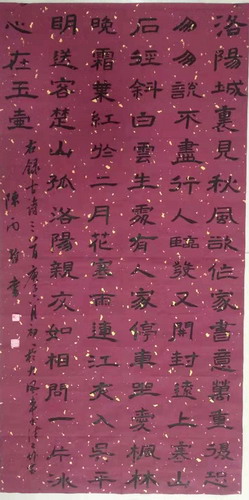 洛陽城裏見秋風欲作家書意萬重復恐
匆匆說不盡行人臨發又開封遠上寒山
石徑斜白雲生處有人家停車坐愛楓林
晚霜葉紅於二月花寒雨連江夜入吳平
明送客楚山孤洛陽親友如相問一片冰
心在玉壺
右錄古詩三首